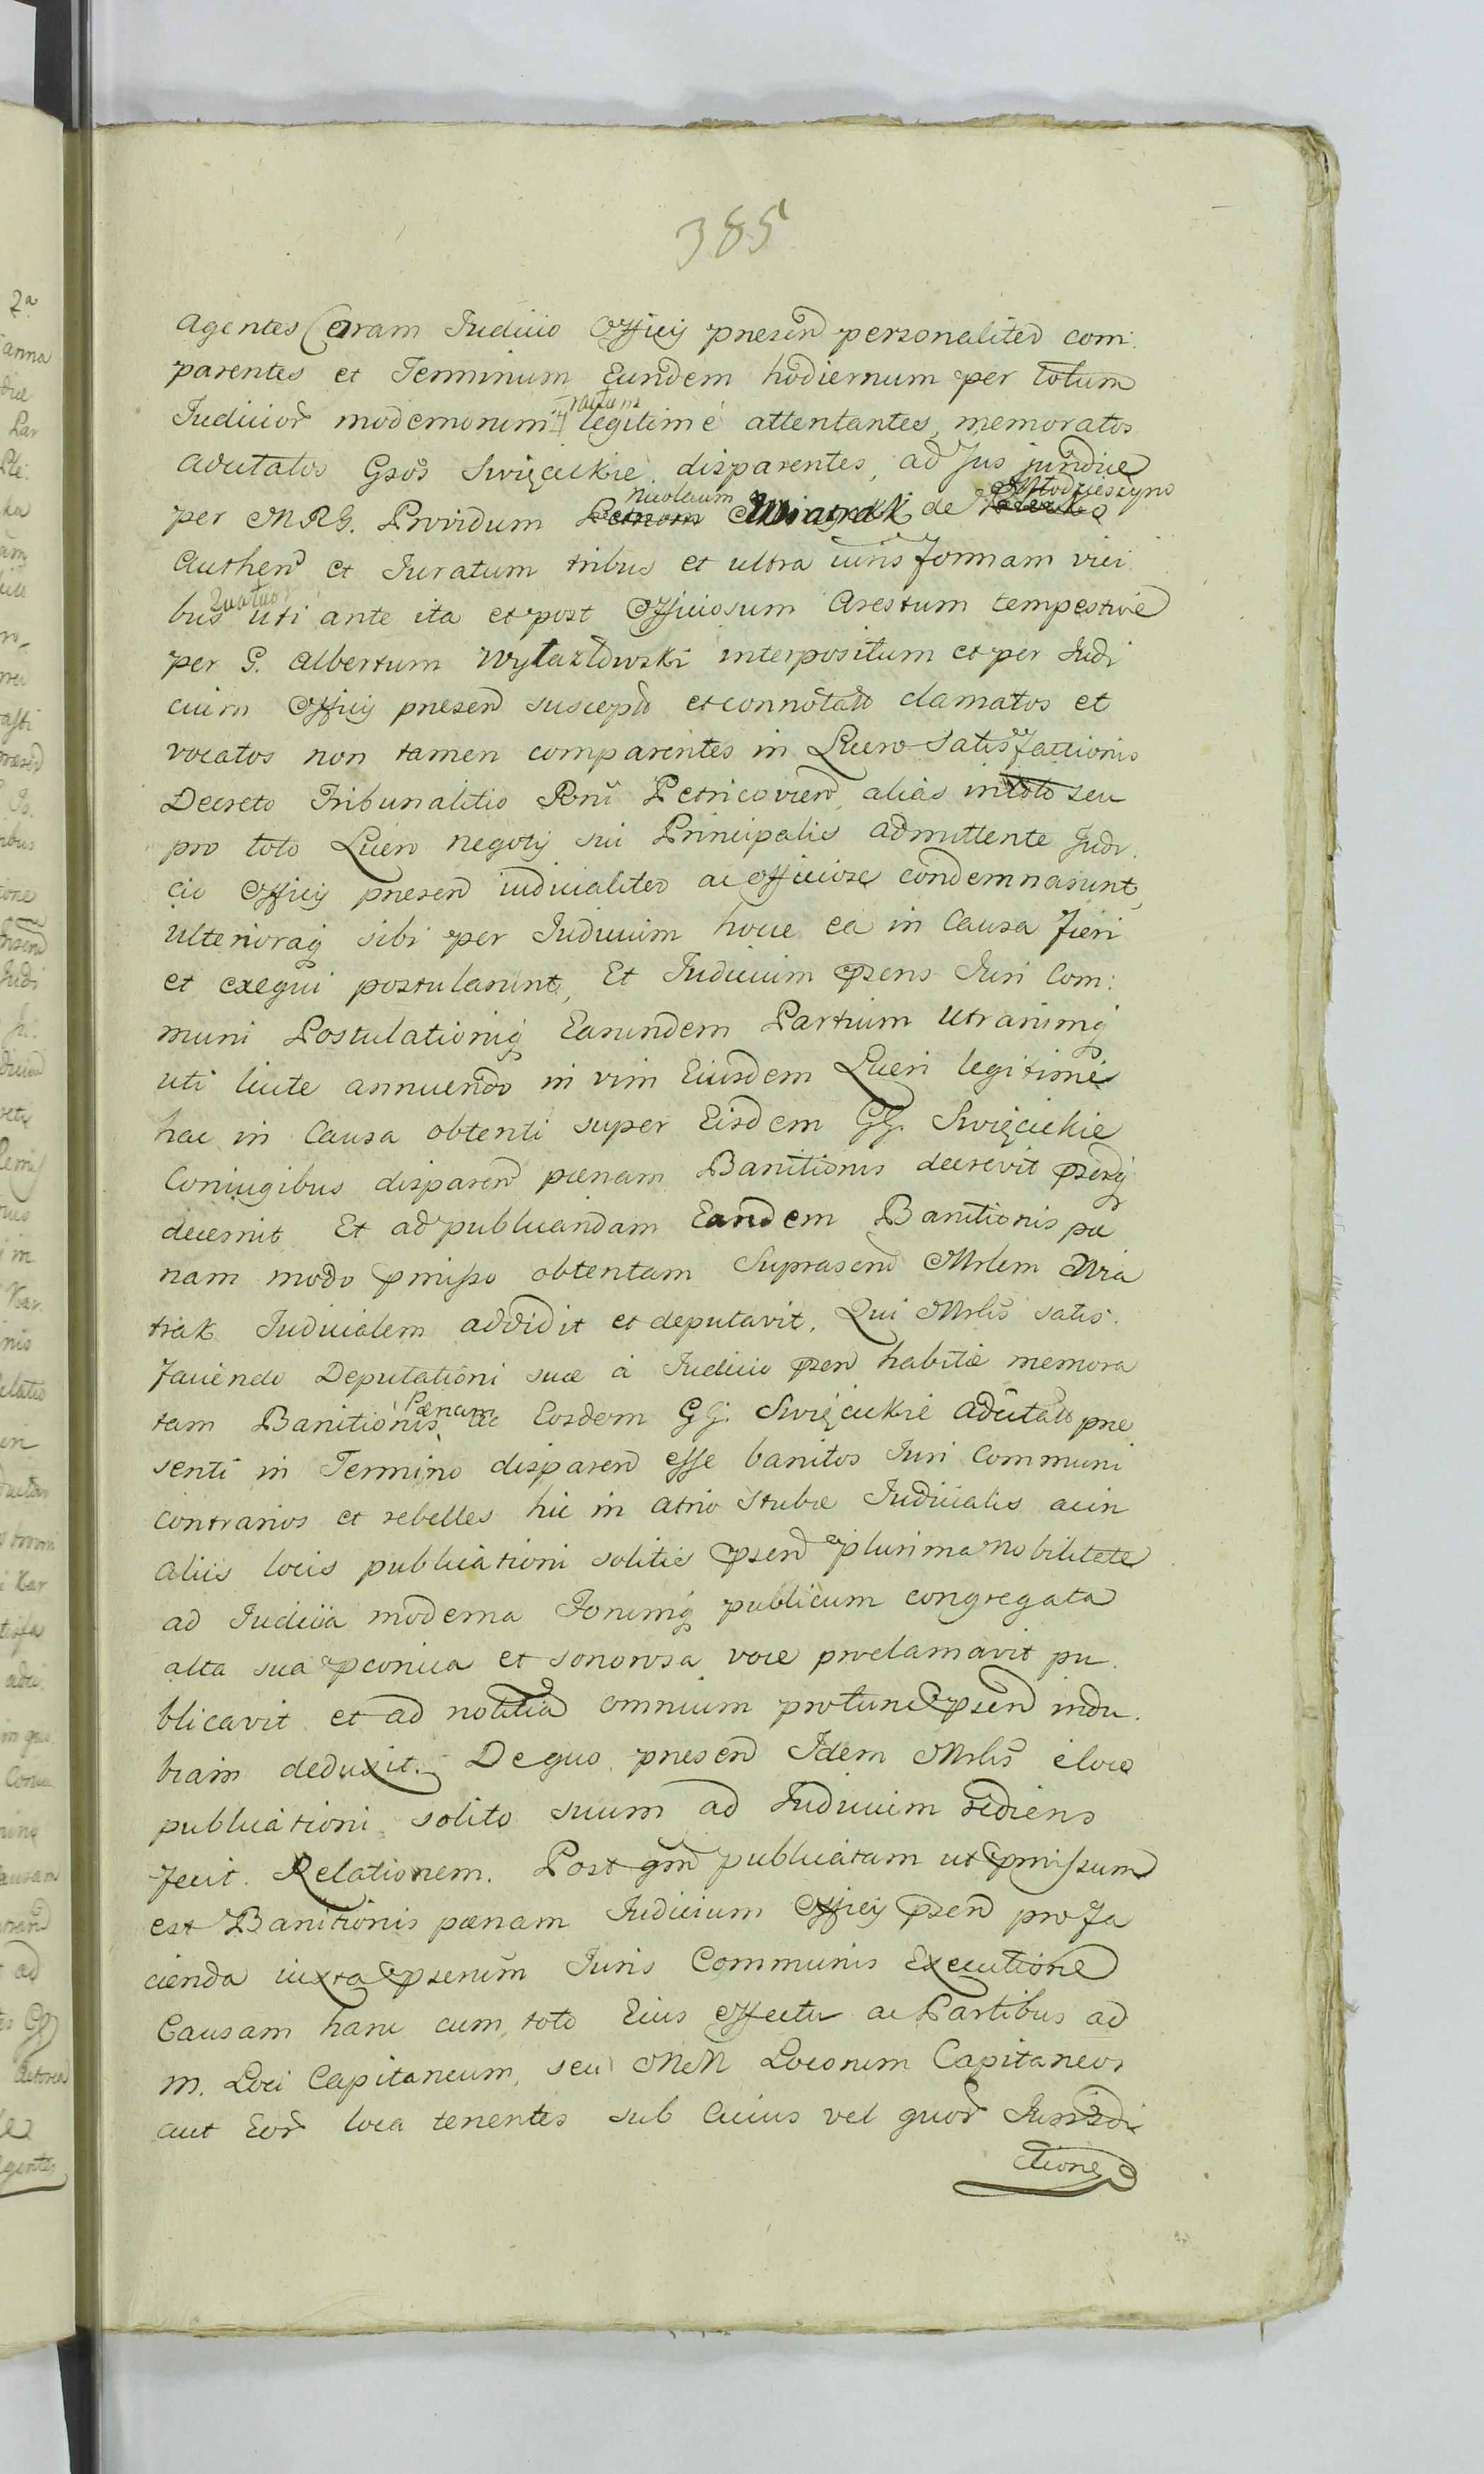 385
Agentes Coram Judicio Officij presen personaliter com:
parentes et Terminum Eundem hodiernum per totum
Judicior modernorum tractum legitime attentantes, memoratos
Acticatos Gsos Święcickie disparentes, ad Jus juridice
per MRG. Providum Petrum Nicolaum Wiatrak de Młodzieszyno
Authen et Juratum tribus et ultra iuris formam vici
bus quatuor uti ante ita et post Officiosum Arestum tempestive
per G. Albertum Wyłazłowski interpositum et per Judi
cium Officij presen suscepto et connotato clamatos et
vocatos non tamen comparentes in Lucro Satisfactionis
Decreto Tribunalitio Rni Petricovien, alias in toto seu
pro toto Lucro negotij sui Principalis admittente Judi.
cio Officij presen iudicialiter ac officiose condemnarunt,
Ulterioraq sibi per Judicium hocce ea in Causa fieri
et exequi postularunt, Et Judicium psens Juri Com:
muni Postulationiq Earundem Partium Utrarumq
uti licite annuendo in vim Eiusdem Lucri legitime
hac in Causa obtenti super Eisdem GG. Święcickie
Coniugibus disparen pœnam Banitionis decrevit psenq
decernit Et ad publicandam Eandem Banitionis pœ
nam modo pmisso obtentam Suprascrip Mrlem Wia
trak Judicialem addidit et deputavit. Qui Mrlis satis.
faciendo Deputationi suæ a Judicio psen habitæ memora
tam Banitionis Pœnam ac Eosdem GG. Święcickie adcitato pre
senti in Termino disparen esse banitos Juri Communi
contrarios et rebelles hic in atrio Stubæ Judicialis ac in
aliis locis publicationi solitis psen plurima nobilitate
ad Judicia moderna Forumq publicum congregata
alta sua pconica et sonorosa voce proclamavit pu.
blicavit et ad notitia omnium protunc psen indu.
biam deduxit. De quo presen Idem Mrlis e loco
publicationi solito suum ad Judicium rediens
fecit Relationem. Post qm publicatam ut pmissum
est Banitionis pœnam Judicium Officij psen pro fa
cienda iuxta pserum Juris Communis Executione
Causam hanc cum toto Eius effectu ac Partibus ad
M. Loci Capitaneum, seu MM Locorum Capitaneos
aut Eor loca tenentes sub cuius vel quor Jurisdi
ctione